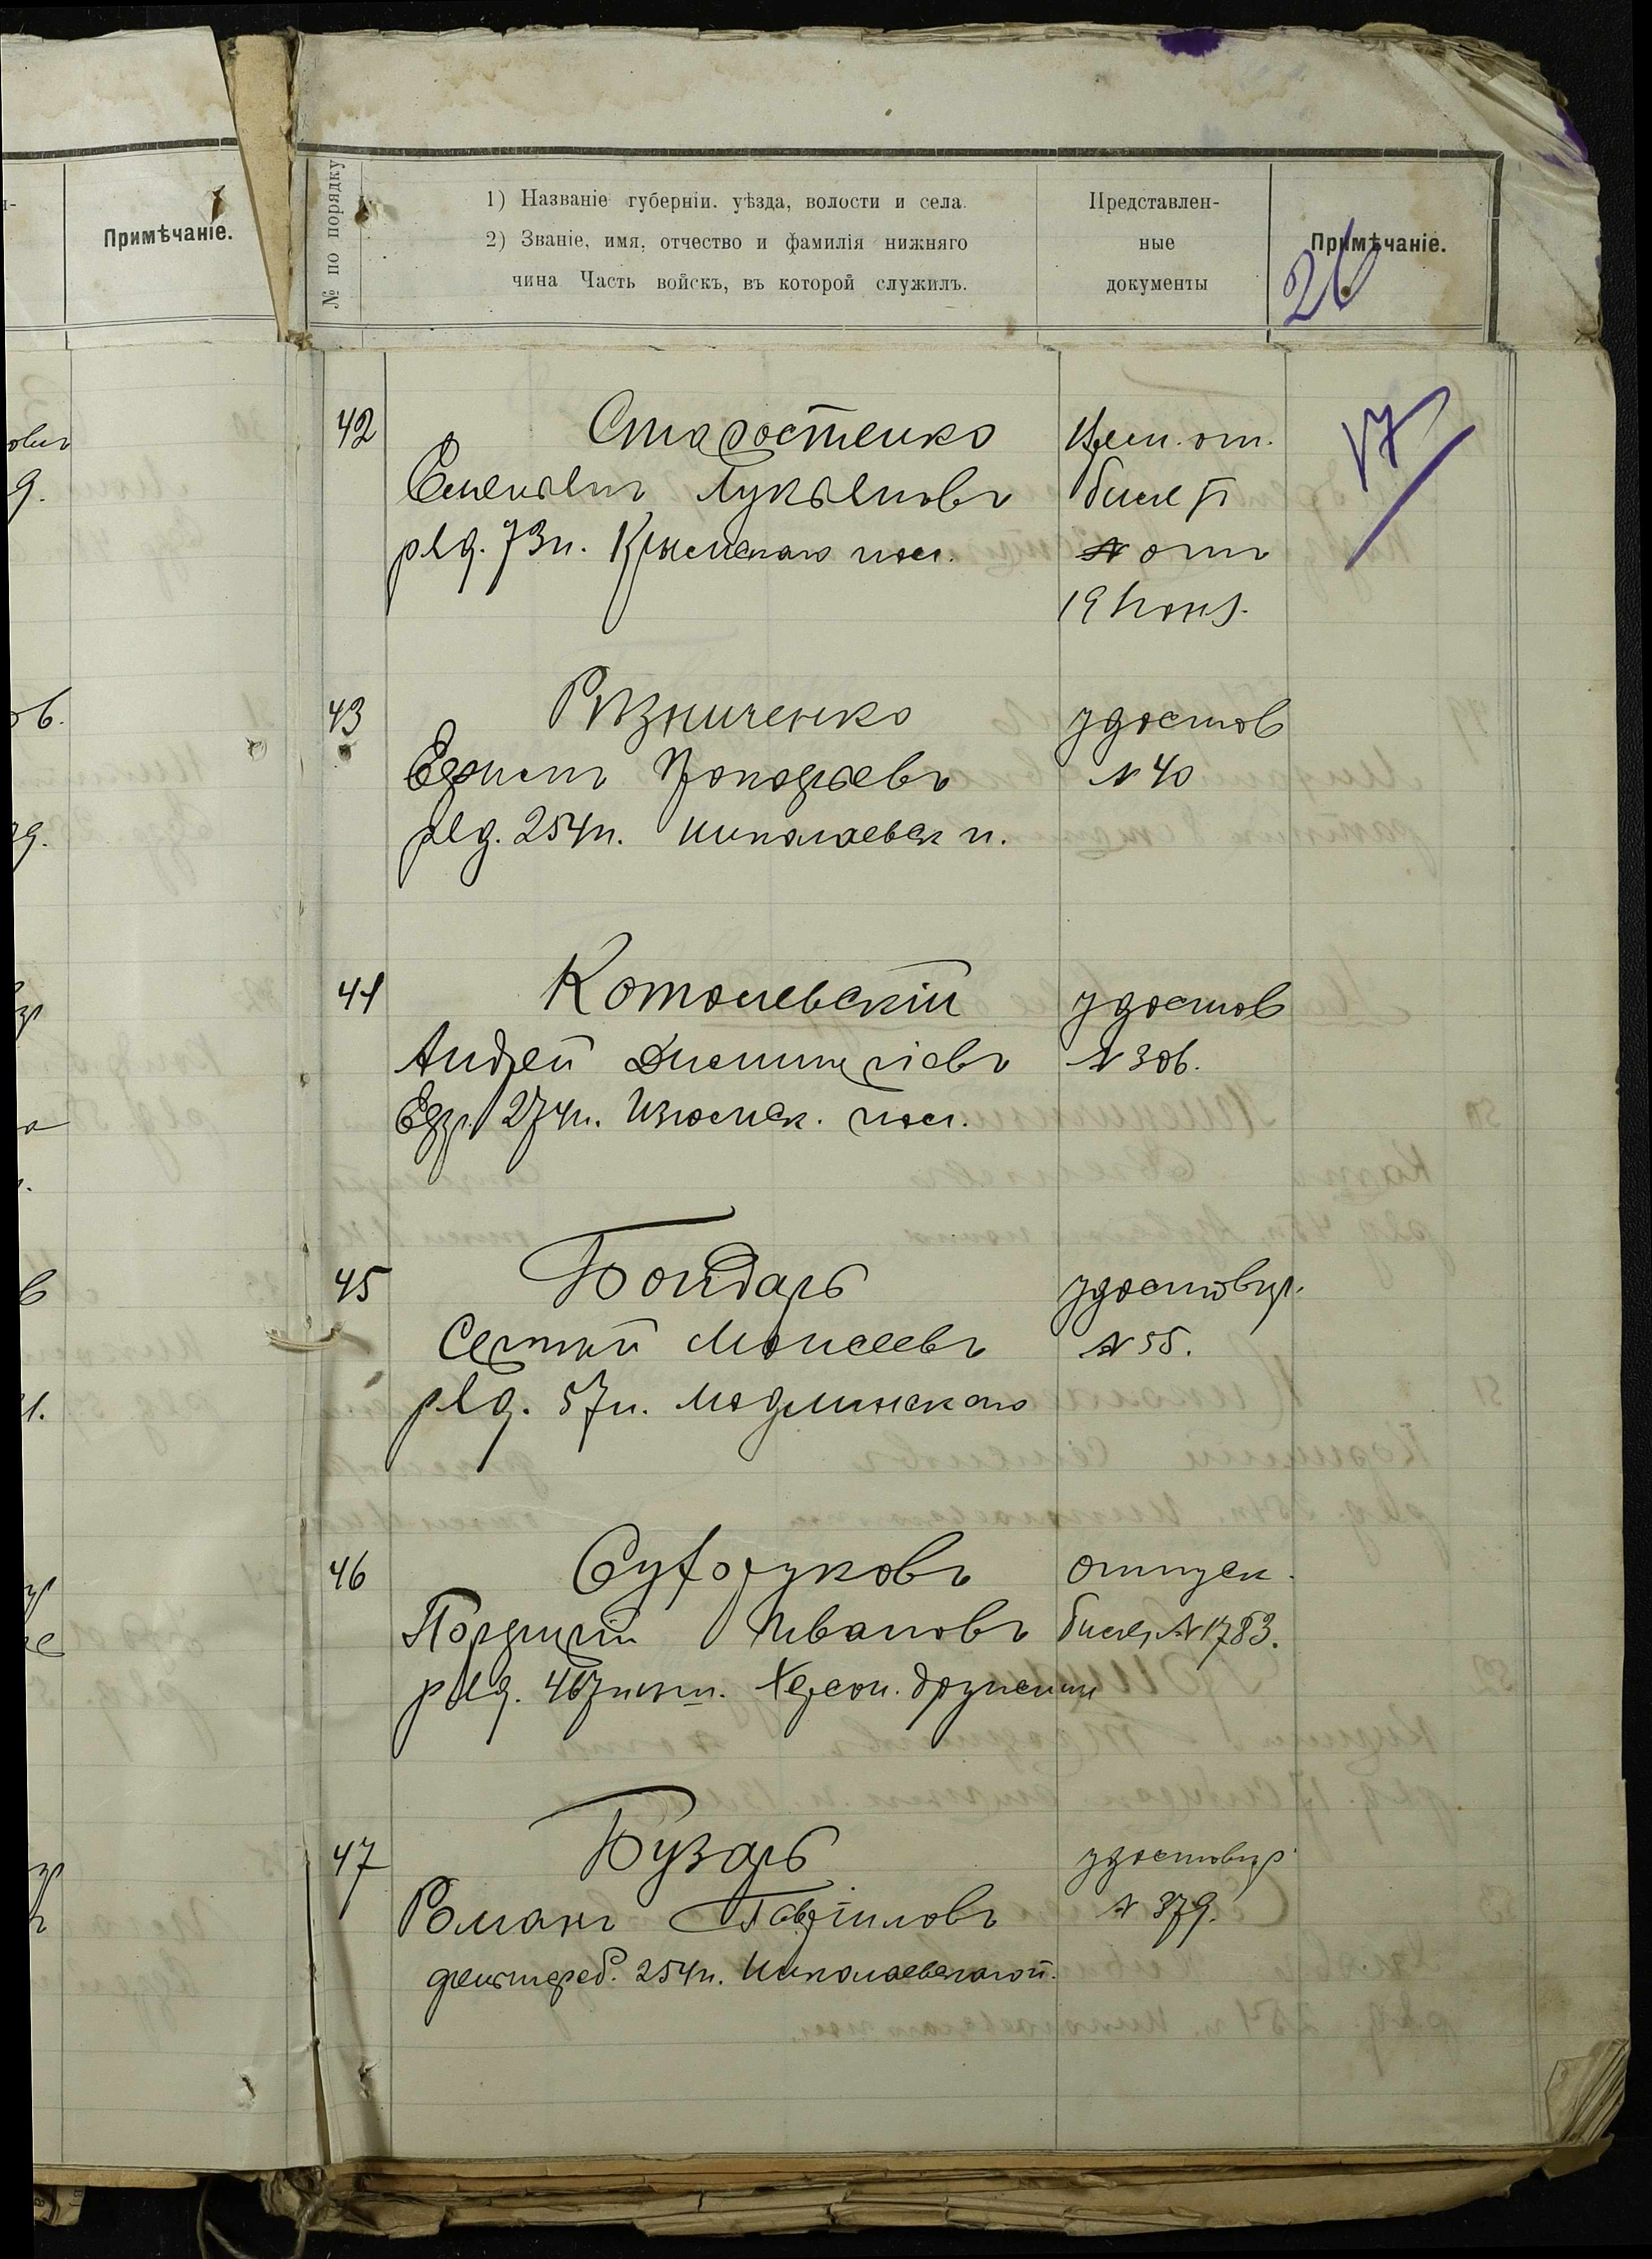 Примѣчаніе.
№ по порядку
1) Названіе губерніи. уѣзда, волости и села.
2) Званіе, имя, отчество и фамилія нижняго
чина Часть войскъ, въ которой служилъ.
Представлен-
ные
документы
Примѣчаніе.
26
17
42 Старостенко
Лукьяновъ
ряд. 73 п. Крымскаго пол.
билет
№ отъ
19 Іюня
43 Рѣзниченко удостов
Прокофьевъ № 40
ряд. 254 п. Николаевск п.
44 Котолевскій удостов
Андрей Дмитріевъ № 306.
Ефр. 274 п. Изюмск. пол.
45 Бондарь удостовѣр.
Сергѣй Моисеевъ № 55.
ряд. 57 п. Модлинскаго
46 Сухоруковъ отпуск.
Порфирій Ивановъ билет № 1783.
ряд. 467 Херсон. дружины
47 Бузарь удостовѣр
Романъ Гавриловъ № 379.
фельтфеб. 254 п. Николаевскаго п.